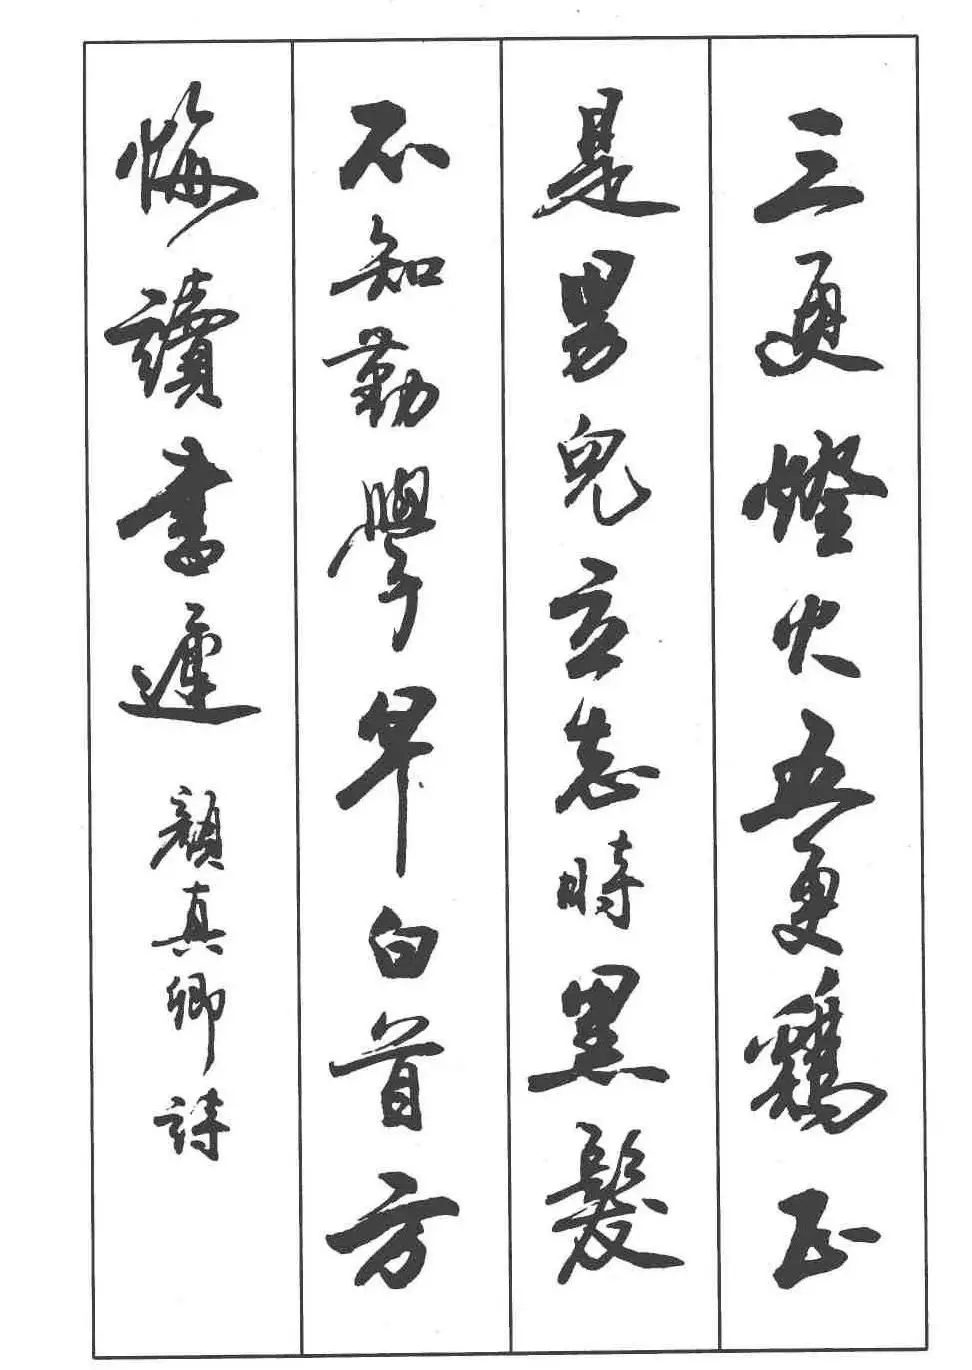 三更燈火五更鷄正
是男兒立志時黑髮
不知勤學早白首方
悔讀書遲
顏真卿詩